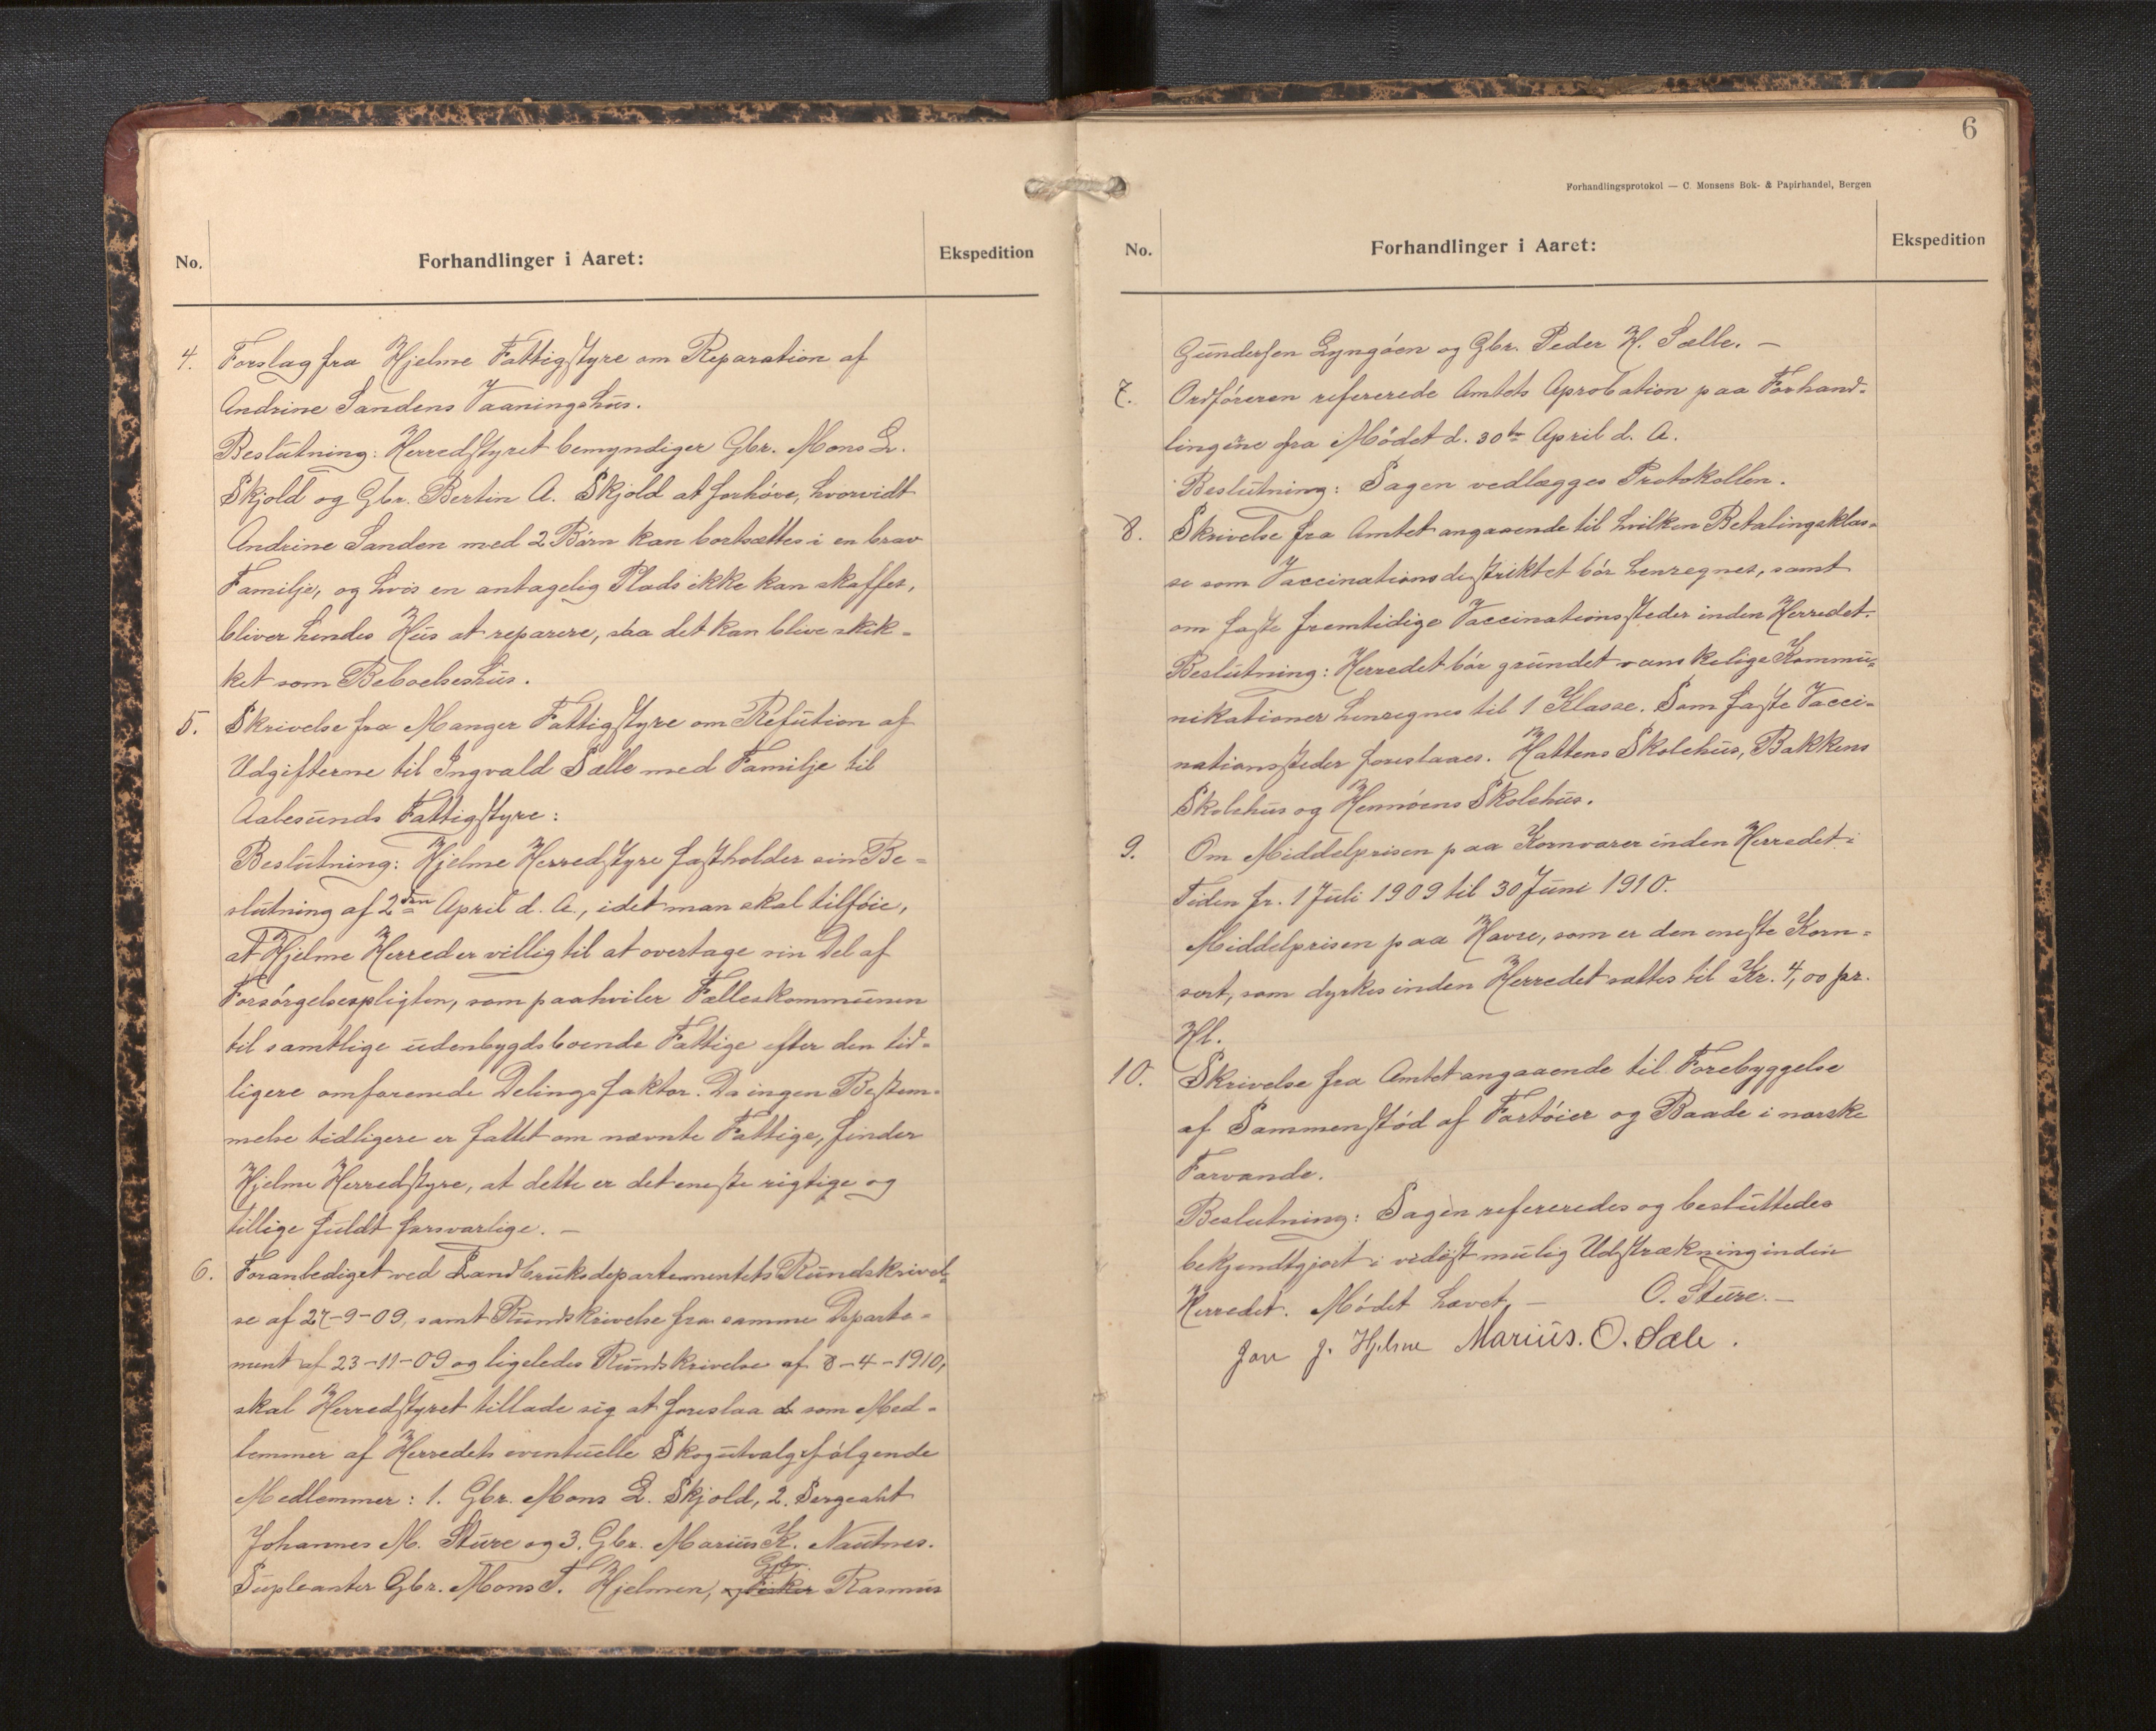 No.
Forhandlinger i Aaret:
Ekspedition
4. Forslag fra Hjelme Fattigstyre om Reparation af
Andrine Sandens Vaaningshus.
Beslutning: Herredstyret bemyndiger Gbr. Mons L.
Skjold og Gbr. Bertin A. Skjold at forhøre, hvorvidt
Andrine Sanden med 2 Børn kan bortsættes i en brav
Familje, og hvis en antagelig Plads ikke kan skaffes,
bliver hendes Hus at reparere, saa det kan blive skik-
ket som Beboelseshus.
5. Skrivelse fra Manger Fattigstyre om Refution af
Udgifterne til Ingvald Sælle med Familje til
Aalesunds Fattigstyre:
Beslutning: Hjelme Herredstyre fastholder sin Be-
slutning af 2den April d. A., idet man skal tilføie,
at Hjelme Herred er villig til at overtage sin Del af
Forsørgelsespligten, som paahviler Fælleskommunen
til samtlige udenbygdsboende Fattige efter den tid-
ligere omforenede Delingsfaktor. Da ingen Bestem-
melse tidligere er fattet om nævnte Fattige, finder
Hjelme Herredstyre, at dette er det eneste rigtige og
tillige fuldt forsvarlige. —
6. Foranlediget ved Landbruksdepartementets Rundskrivel-
se af 27-9-09, samt Rundskrivelse fra samme Departe-
ment af 23-11-09 og ligeledes Rundskrivelse af 8-4-1910,
skal Herredstyret tillade sig at foreslaa som Med-
lemmer af Herredets eventuelle Skogutvalg følgende
Medlemmer: 1. Gbr. Mons L. Skjold, 2. Sergeant
Johannes M. Sture og 3. Gbr. Marius K. Nautnes.
Supleanter Gbr. Mons T. Hjelmen, Gbr. Rasmus
6
Forhandlingsprotokol — C. Monsens Bok- & Papirhandel, Bergen
No.
Forhandlinger i Aaret:
Ekspedition
Gundersen Lyngøen og Gbr. Peder H. Sælle. —
7. Ordføreren refererede Amtets Aprobation paa Forhand-
lingene fra Mødet d. 30te April d. A.
Beslutning: Sagen vedlægges Protokollen.
8. Skrivelse fra Amtet angaaende til hvilken Betalingsklas-
se som Vaccinationsdistriktet bør henregnes, samt
om faste fremtidige Vaccinationssteder inden Herredet.
Beslutning: Herredet bør grundet vanskelige Kommu-
nikationer henregnes til 1 Klasse. Som faste Vacci-
nationssteder foreslaaes. Hattens Skolehus, Bakkens
Skolehus og Hennøens Skolehus.
9. Om Middelprisen paa Kornvarer inden Herredet i
Tiden fr. 1 Juli 1909 til 30 Juni 1910.
Middelprisen paa Havre, som er den eneste Korn-
sort, som dyrkes inden Herredet sattes til Kr. 4,00 pr.
Hl.
10. Skrivelse fra Amtet angaaende til Forebyggelse
af Sammenstød af Fartøier og Baade i norske
Farvande.
Beslutning: Sagen refereredes og besluttedes
bekjendtgjort i videst mulig Udstrækning inden
Herredet. Mødet hævet, — O. Sture. —
J. Hjelme Marius. O. Sæle.